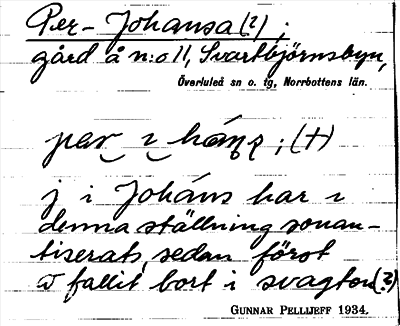 Per-Johansa(?);
gård å n:o 11, Svartbjörnsbyn,
Överluleå sn o. tg, Norrbottens län.
j i Joháns har ı
denna ställning sonan-
tiserats, sedan först
fallit bort i svagton(?)
GUNNAR PELLIJEFF 1934.